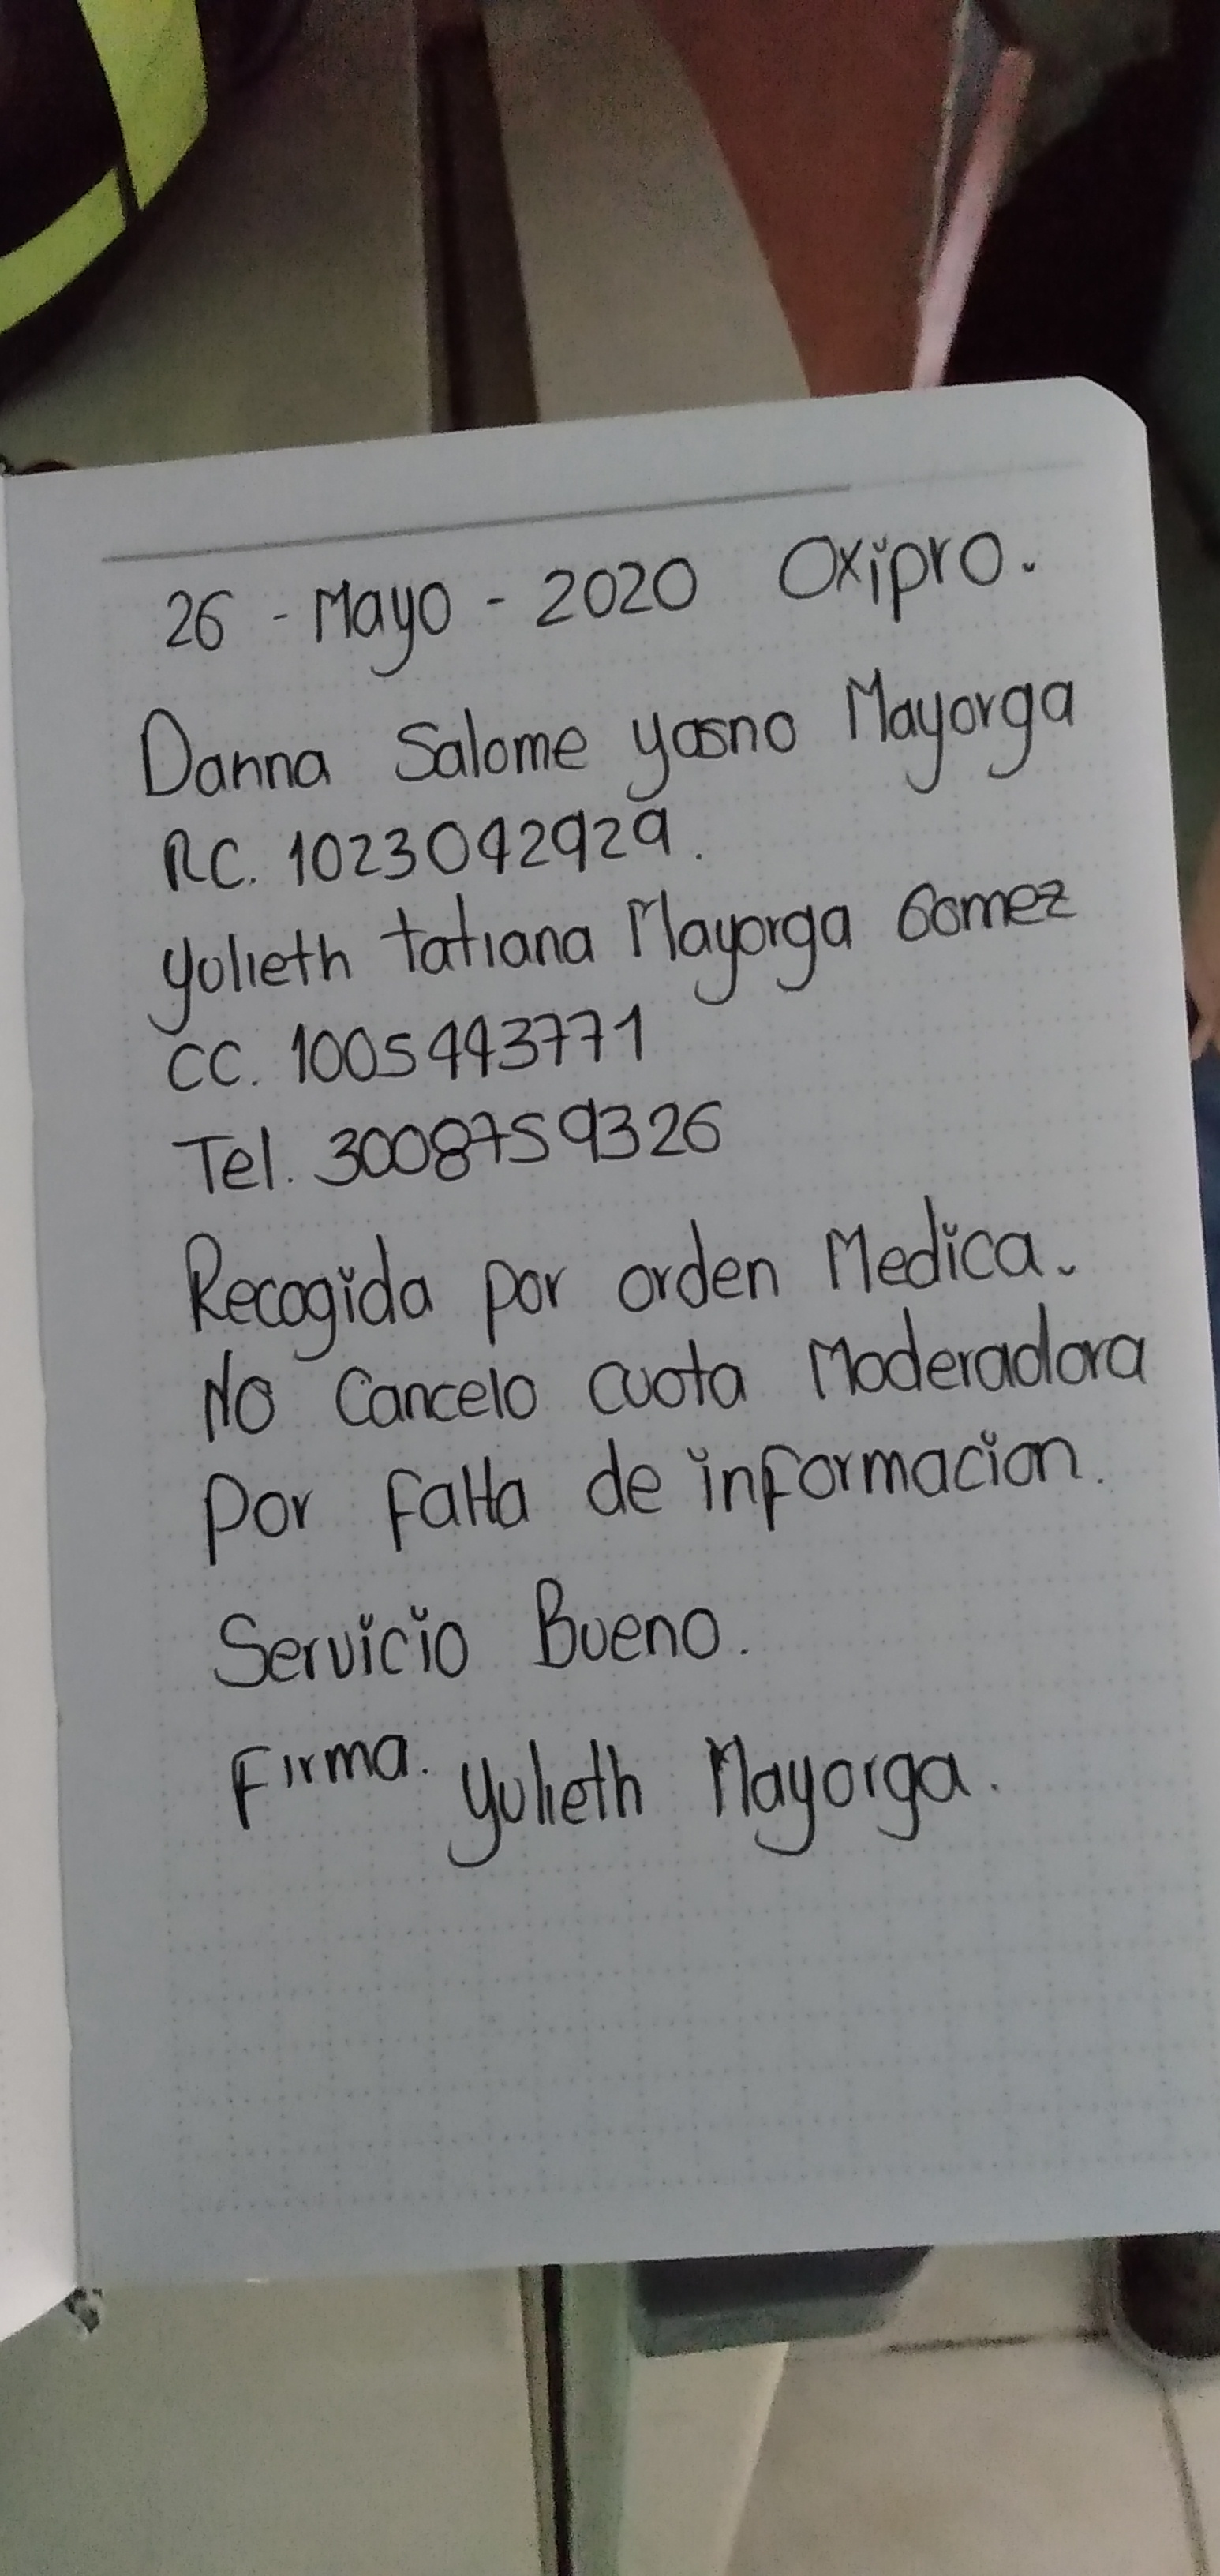 26 - Mayo - 2020 Oxipro.
Danna Salome yasno Mayorga
RC. 1023042929.
Yulieth tatiana Mayorga Gomez
CC. 1005443771
Tel. 3008759326
Recogida por orden Medica.
No Cancelo cuota Moderadora
por falta de informacion.
Servicio Bueno.
Firma. Yulieth Mayorga.